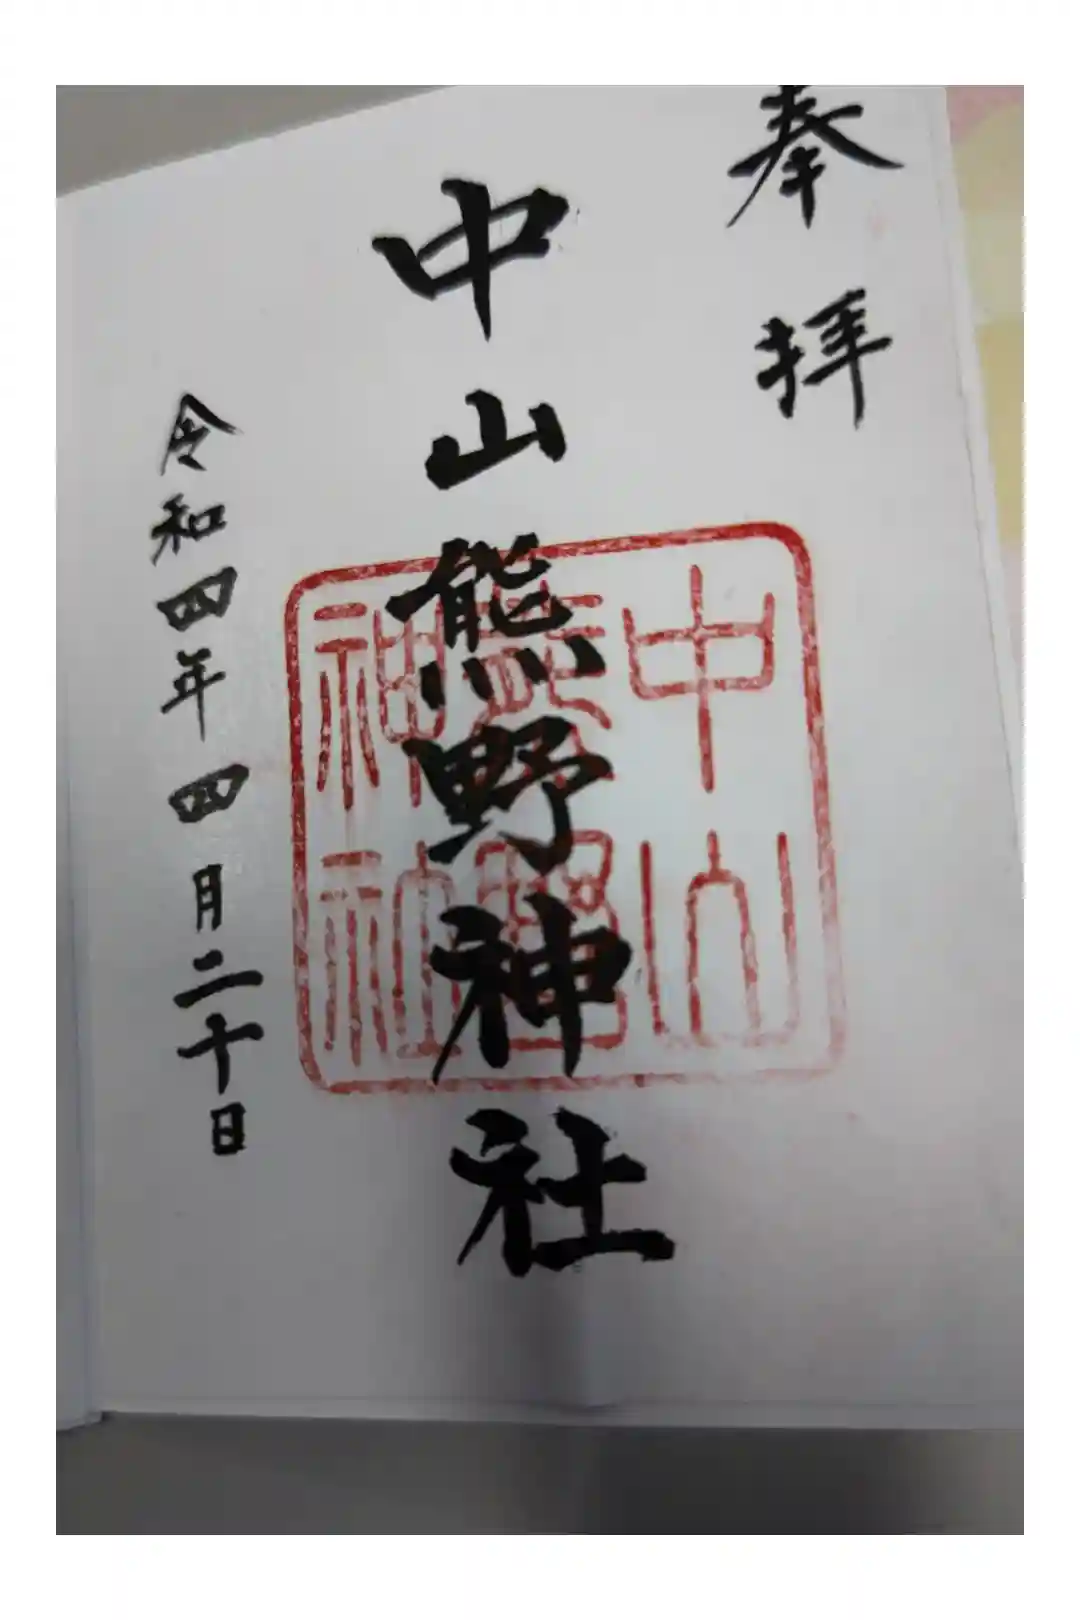 奉拝
中山熊野神社
中山
熊野
神社
令和四年四月二十日